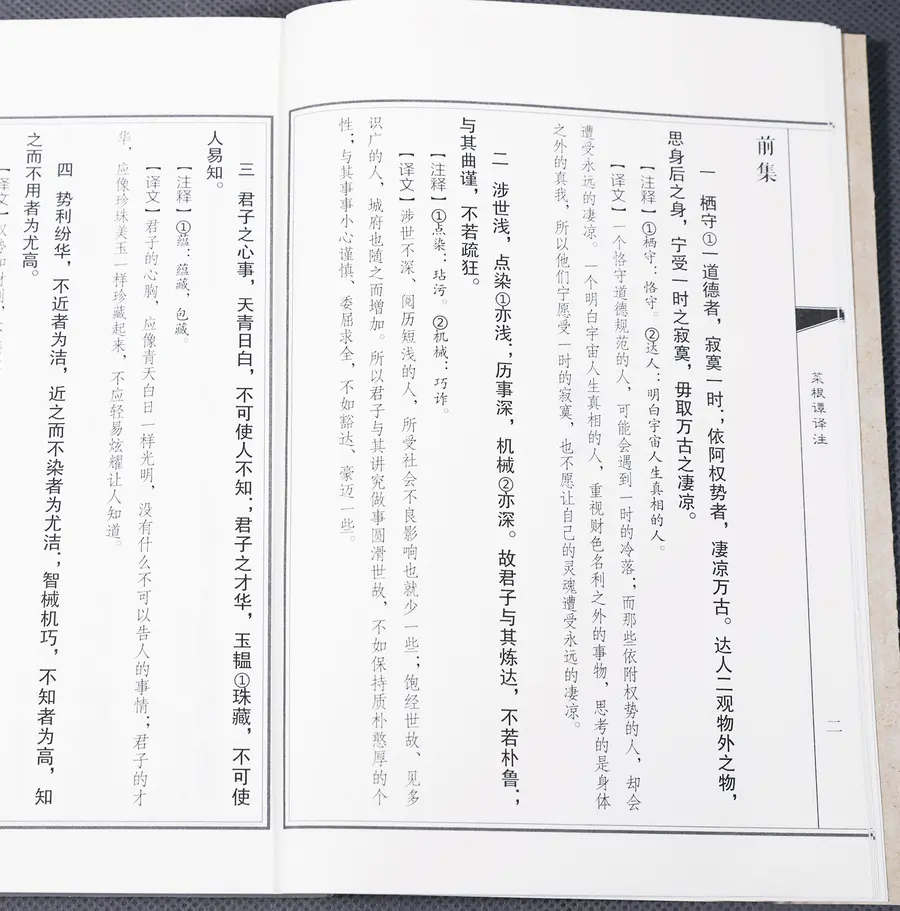 菜根谭译注
二
前集
一 栖守①道德者，寂寞一时；依阿权势者，凄凉万古。达人②观物外之物，
思身后之身，宁受一时之寂寞，毋取万古之凄凉。
【注释】①栖守：恪守。 ②达人：明白宇宙人生真相的人。
【译文】一个恪守道德规范的人，可能会遇到一时的冷落；而那些依附权势的人，却会
遭受永远的凄凉。一个明白宇宙人生真相的人，重视财色名利之外的事物，思考的是身体
之外的真我，所以他们宁愿受一时的寂寞，也不愿让自己的灵魂遭受永远的凄凉。
二 涉世浅，点染①亦浅；历事深，机械②亦深。故君子与其炼达，不若朴鲁；
与其曲谨，不若疏狂。
【注释】①点染：玷污。 ②机械：巧诈。
【译文】涉世不深、阅历短浅的人，所受社会不良影响也就少一些；饱经世故、见多
识广的人，城府也随之而增加。所以君子与其讲究做事圆滑世故，不如保持质朴憨厚的个
性；与其事事小心谨慎、委屈求全，不如豁达、豪迈一些。
三 君子之心事，天青日白，不可使人不知；君子之才华，玉韫①珠藏，不可使
人易知。
【注释】①蕴：蕴藏，包藏。
【译文】君子的心胸，应像青天白日一样光明，没有什么不可以告人的事情；君子的才
华，应像珍珠美玉一样珍藏起来，不应轻易炫耀让人知道。
四 势利纷华，不近者为洁，近之而不染者为尤洁；智械机巧，不知者为高，知
之而不用者为尤高。